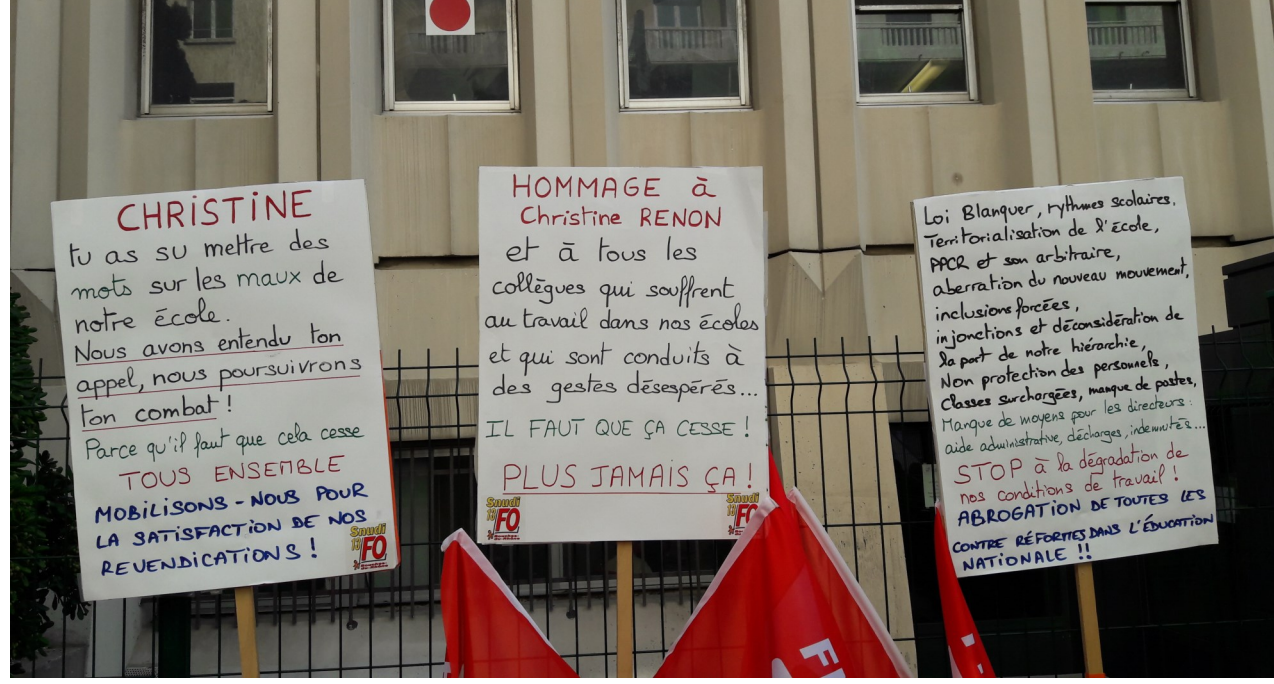 CHRISTINE
tu as su mettre des
mots sur les maux de
notre école.
Nous avons entendu ton
appel, nous poursuivrons
ton combat !
Parce qu'il faut que cela cesse
TOUS ENSEMBLE
MOBILISONS-NOUS POUR
LA SATISFACTION DE NOS
REVENDICATIONS !
Snudi
13 FO
HOMMAGE à
Christine RENON
et à tous les
collègues qui souffrent
au travail dans nos écoles
et qui sont conduits à
des gestes désespérés...
IL FAUT QUE ÇA CESSE !
PLUS JAMAIS ÇA !
Snudi
13 FO
Snudi
13 FO
Loi Blanquer, rythmes scolaires,
Territorialisation de l'école,
PPCR et son arbitraire,
aberration du nouveau mouvement,
inclusions forcées,
injonctions et déconsidération de
la part de notre hiérarchie,
Non protection des personnels,
Classes surchargées, manque de postes,
Manque de moyens pour les directeurs :
aide administrative, décharges, indemnités...
STOP à la dégradation de
nos conditions de travail !
ABROGATION DE TOUTES LES
CONTRE RÉFORMES DANS L'ÉDUCATION
NATIONALE !!